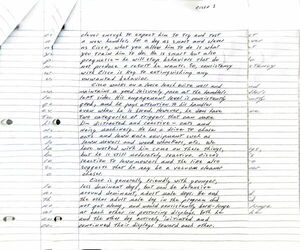 Cisco 3
clever enough to expect him to try and test
a new handler. For a dog as smart and clever
as Cisco, what you allow him to do is what
you train him to do. He is smart but also
pragmatic - he will stop behaviors that do
not produce a effect he wants. So, consistency
with Cisco is key to extinguishing any
unwanted behavior.
Cisco works on a loose leash quite well and
maintains a good leisurely pace at the handler's
left side. His engagement level is consistently
good, and he pays attention to his handler
even when he is bored
Two categories of triggers that can make
him distracted and reactive - cats and
noisy machinery. He has a drive to chase
cats and lawn care equipment such as
lawn mowers and weed whackers, etc. We
have worked with him some on these things,
but he is still moderately reactive. Cisco's
reaction to lawnmowers and the like also
suggests that he may be a vacuum cleaner
chaser.
Cisco is generally friendly with younger,
less dominant dogs, but can be defensive
around dominant, adult male dogs. He and
the other adult male dog in the program did
not get along, and would consistently bark, lunge
at each other in posturing displays. Both he
and the other dog entirely, initiated and
continued their displays toward each other.